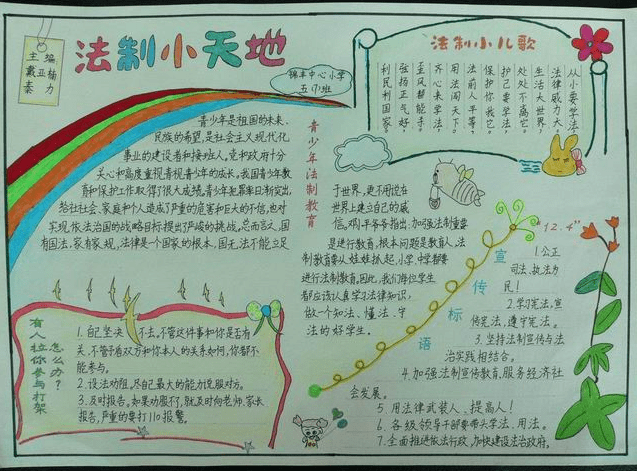 法制小天地
主编
戴亚杨
秦力
锦丰中心小学
五(1)班
法制小儿歌
从小要学法
法律威力大。
生活大世界,
处处不离它。
护己要学法,
保护你我它。
法前人平等,
用法闯天下。
齐心来学法,
歪风帮能手。
弘扬正气好,
利民利国家。
青少年是祖国的未来,
民族的希望,是社会主义现代化
事业的建设者和接班人,党和政府十分
关心和高度重视青少年的成长,我国青少年教
育和保护工作取得了很大成绩,青少年犯罪率日渐突出,
给社社会、家庭和个人造成了严重的危害和巨大的不信,也对
实现依法治国的战略目标提出了严峻的挑战。总而言之,国
有国法,家有家规,法律是一个国家的根本,国无法不能立足
青少年法制教育
于世界,更不用说在
世界上建立自己的威
信。邓小平爷爷指出:加强法制重要
是进行教育,根本问题是教育人,法
制教育要从娃娃抓起,小学、中学都要
进行法制教育。因此,我们每位学生
都应该认真学习法律知识,
做一个知法、懂法、守
法的好学生。
有人拉你参与打架
怎么办?
1.自己坚决不去,不管这件事和你是否有
关,不管予盾双方和你本人的关系如何,你都不
能参与。
2.设法劝阻,尽自己最大的能力说服对方。
3.及时报告。如果劝服不了,就及时向老师、家长
报告,严重的要打110报警。
宣传标语
"12.4"
1.公正
司法、执法为
民!
2.学习宪法,宣
传宪法,遵守宪法。
3.坚持法制宣传与法
治实践相结合。
4.加强法制宣传教育,服务经济社
会发展。
5.用法律武装人、提高人!
6.各级领导干部要带头学法、用法。
7.全面推进依法行政,加快建设法治政府。